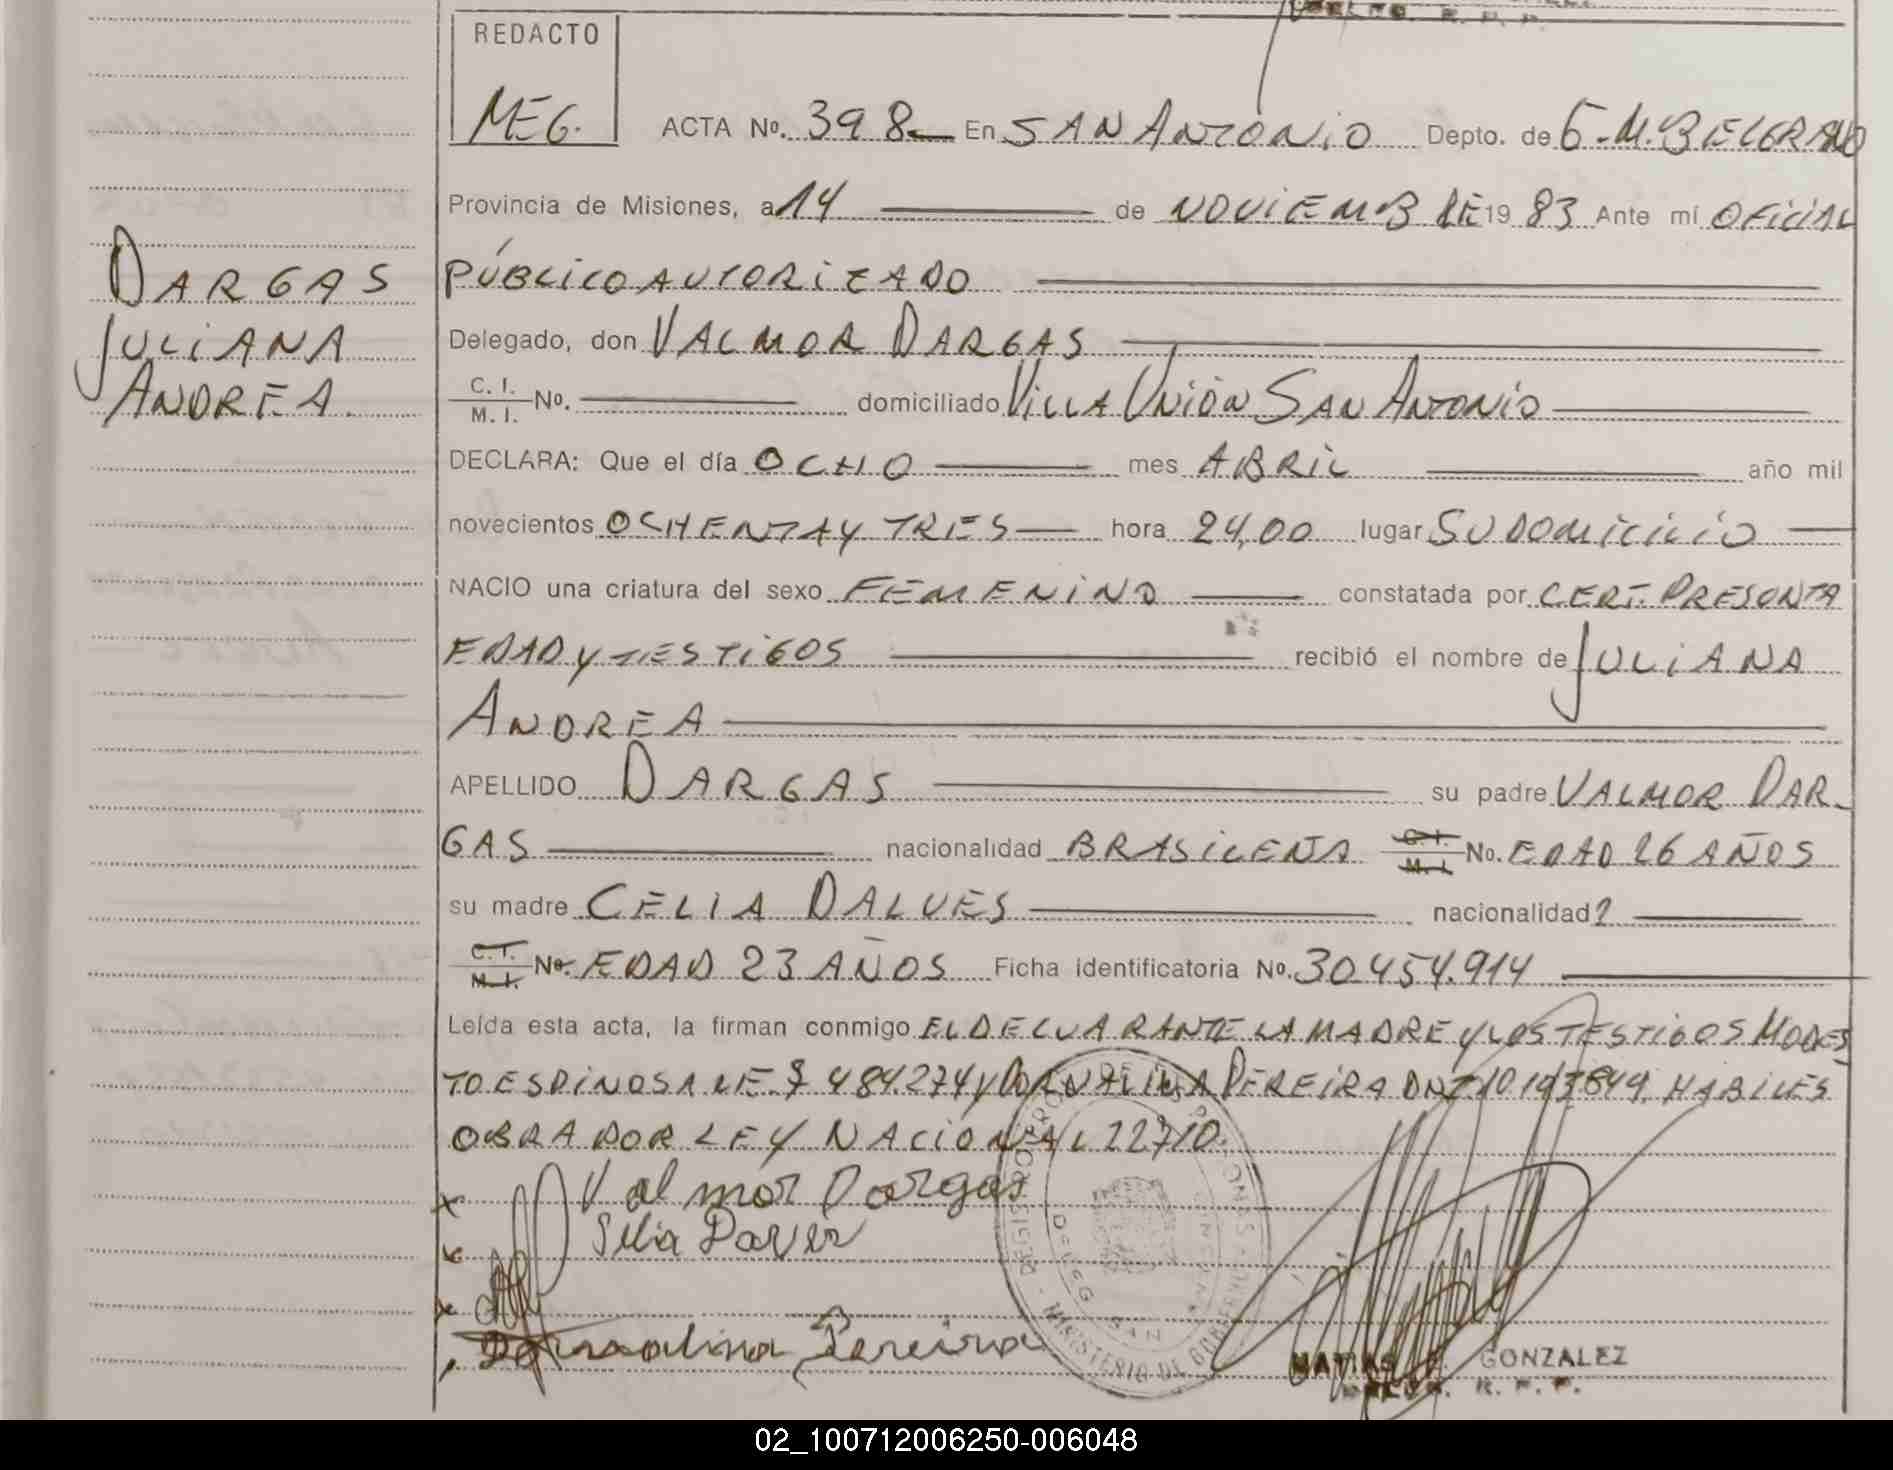 REDACTO
MEG.
ACTA No. 398 En SAN ANTONIO Depto. de G.M. BELGRANO
Provincia de Misiones, a 14 de NOVIEMBRE 19 83 Ante mí OFICIAL
PÚBLICO AUTORIZADO
DARGAS
JULIANA
ANDREA.
Delegado, don VALMOR DARGAS
C. I.
M. I. No. domiciliado VILLA UNIÓN SAN ANTONIO
DECLARA: Que el día OCHO mes ABRIL año mil
novecientos OCHENTA Y TRES hora 24,00 lugar SU DOMICILIO
NACIO una criatura del sexo FEMENINO constatada por CERT. PRESUNTA
EDAD Y TESTIGOS recibió el nombre de JULIANA
ANDREA
APELLIDO DARGAS su padre VALMOR DAR-
GAS nacionalidad BRASILEÑA C. I. M. I. No. EDAD 26 AÑOS
su madre CELIA DALVES nacionalidad
C. I. M. I. No. EDAD 23 AÑOS Ficha identificatoria No. 30.454.914
Leída esta acta, la firman conmigo EL DECLARANTE LA MADRE Y LOS TESTIGOS MODES
TO ESPINOSA 484.274 Y PEREIRA DNI HABILES
OBRA POR LEY NACIONAL 22710.
Valmor Dargas
Pereira
MINISTERIO DE GOBIERNO
GONZALEZ
R. P. P.
02_100712006250-006048